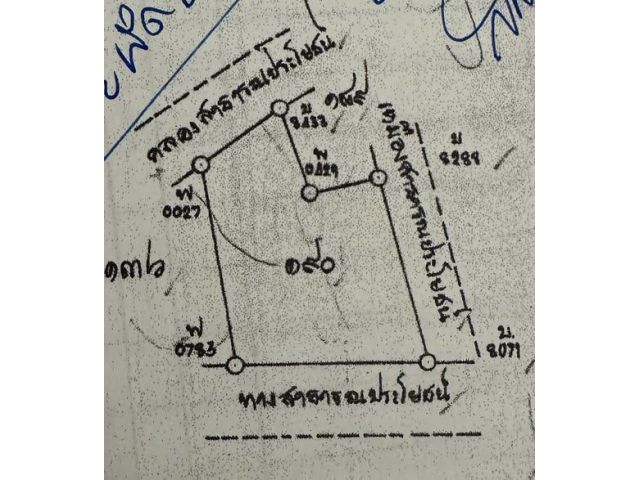 คลองสาธารณประโยชน์
๑๘๙
น
8433
พ
0429
เหมืองสาธารณประโยชน์
น
8288
ฟ
0027
๑๓๖
๑๙๐
ฟ
0783
น.
8071
ทางสาธารณประโยชน์